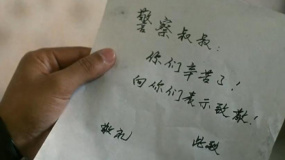 警察叔叔：
你们辛苦了！
向你们表示致敬！
敬礼 此致